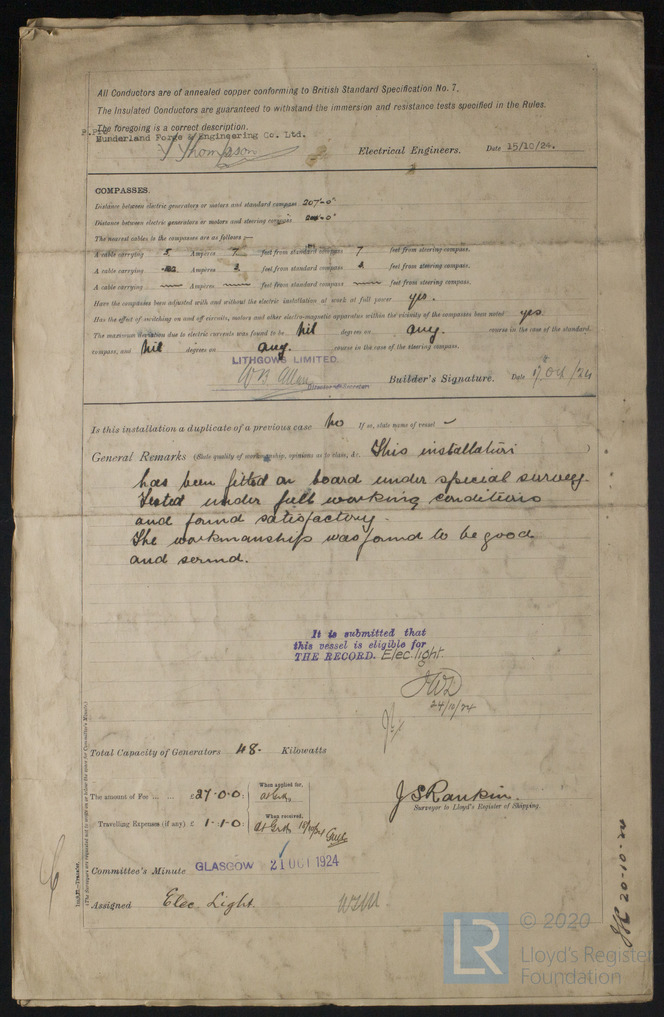 All Conductors are of annealed copper conforming to British Standard Specification No. 7.
The Insulated Conductors are guaranteed to withstand the immersion and resistance tests specified in the Rules.
The foregoing is a correct description.
Forge & Engineering Co. Ltd.
Thompson Electrical Engineers. Date 15/10/24.
COMPASSES.
Distance between electric generators or motors and standard compass 207'-0"
Distance between electric generators or motors and steering compass
The nearest cables to the compasses are as follows:—
A cable carrying 5 Amperes 7 feet from standard compass 7 feet from steering compass.
A cable carrying Amperes feet from standard compass feet from steering compass.
A cable carrying Amperes feet from standard compass feet from steering compass.
Have the compasses been adjusted with and without the electric installation at work at full power yes.
Has the effect of switching on and off circuits, motors and other electro-magnetic apparatus within the vicinity of the compasses been noted yes
The maximum deviation due to electric currents was found to be nil degrees on any. course in the case of the standard
compass, and nil degrees on any. course in the case of the steering compass.
LITHGOWS LIMITED
Wm Allan Builder's Signature. Date 17 Oct/24
Is this installation a duplicate of a previous case no If so, state name of vessel –
General Remarks (State quality of workmanship, opinions as to class, &c. This installation )
has been fitted on board under special survey.
Tested under full working conditions
and found satisfactory.
The workmanship was found to be good
and sound.
It is submitted that
this vessel is eligible for
THE RECORD. Elec. light.
JWD
24/10/24
Total Capacity of Generators 48. Kilowatts
The amount of Fee ... ... £27-0-0: When applied for,
Travelling Expenses (if any) £ 1-1-0: When received,
J S Rankin.
Surveyor to Lloyd's Register of Shipping.
Committee's Minute GLASGOW 21 OCT 1924
Assigned Elec Light.
20-10-24
LR © 2020
Lloyd's Register
Foundation